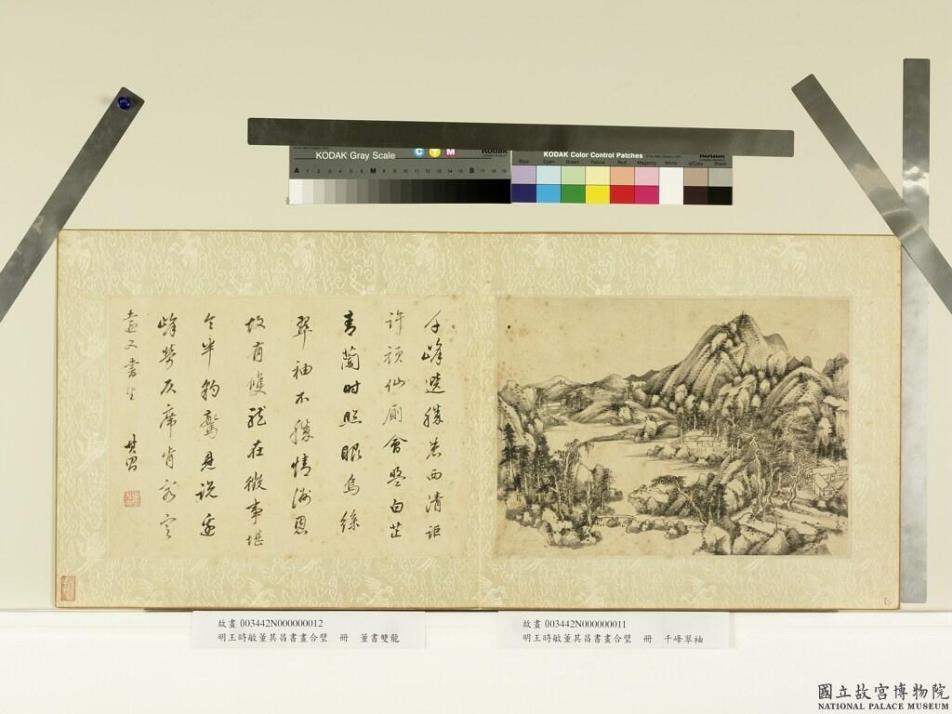 KODAK Gray Scale
C Y M
KODAK
A 1 2 3 4 5 6 M 8 9 10 11 12 13 14 15 B 17 18 19
KODAK Color Control Patches
Blue Cyan Green Yellow Red Magenta White 3/Color Black
千峰勝西清詎
許頑仙廁會盟白芷
青蘭時照眼烏絲
翠袖不勝情恩
故有雙龍在徵事堪
令半豹驚見說
峰勞仄席肯容
又書生 其昌
故畫 003442N000000012
明王時敏董其昌書畫合璧 冊 董書雙龍
故畫 003442N000000011
明王時敏董其昌書畫合璧 冊 千峰翠袖
國立故宮博物院
NATIONAL PALACE MUSEUM